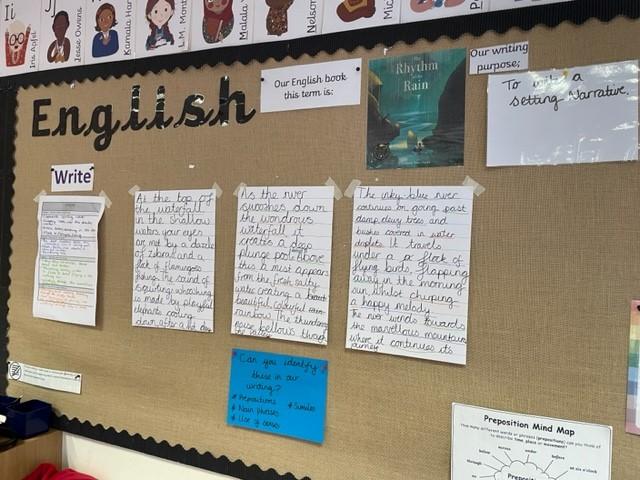 Ii
Iris Apfel
Jesse Owens
Kamala Har
L.M. Mont
Malala
Nelson
Mic
English
Our English book
this term is:
The
Rhythm
of the
Rain
Our writing
purpose;
To write a
setting Narrative.
Write
At the top of
the waterfall
in the shallow
water, your eyes
are met by a dazzle
of zebras and a
flock of flamingos
fishing. The sound of
squirting, whooshing
is made by playful
elephants cooling
down after a hot day
As the river
swooshes down
the wondrous
waterfall it
creates a deep
plunge pool. Above
this a mist appears
from the fresh salty
water creating a
beautiful, colourful
rainbow. The thundering
noise bellows through
The inky-blue river
continues on going past
damp, dewy trees and
bushes covered in water
droplets. It travels
under a flock of
flying birds flapping
away in the morning
sun whilst chirping
a happy melody.
The river winds towards
the marvellous mountains
where it continues its
journey.
Can you identify
these in our
writing?
* Prepositions
* Similes
* Noun phrases
* Use of senses
Preposition Mind Map
How many different words or phrases (prepositions) can you think of
to describe time, place or movement?
below
across
under
before
through
at six o'clock